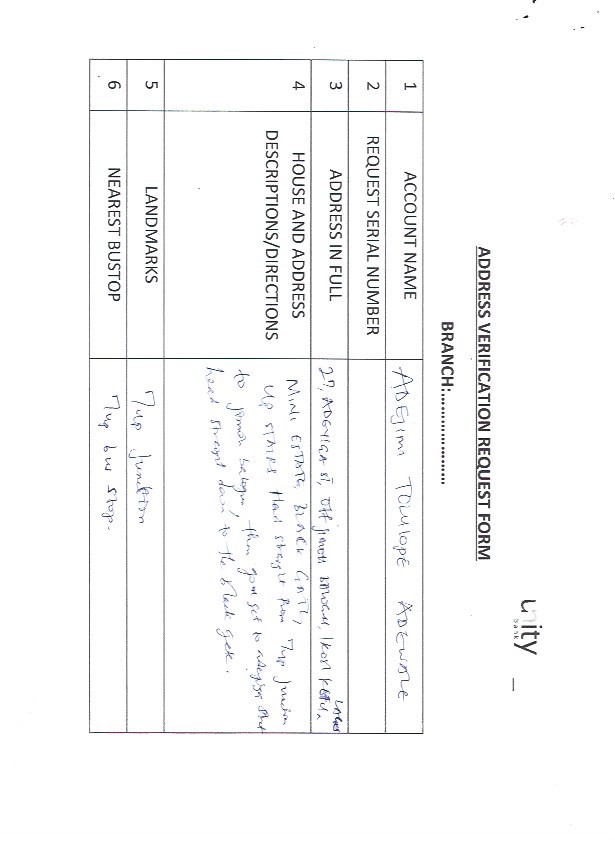 unity
bank
ADDRESS VERIFICATION REQUEST FORM
BRANCH:........................
1 ACCOUNT NAME ADEJIMI TOLULOPE ADEWALE
2 REQUEST SERIAL NUMBER
3 ADDRESS IN FULL 27, ST, Off LAGOS
4 HOUSE AND ADDRESS DESCRIPTIONS/DIRECTIONS MINI ESTATE, BLACK GATE,
UP STAIRS Head straight from 7up junction
to balogun, then you get to
head straight down to the black gate.
5 LANDMARKS 7up junction
6 NEAREST BUSTOP 7up bus stop.